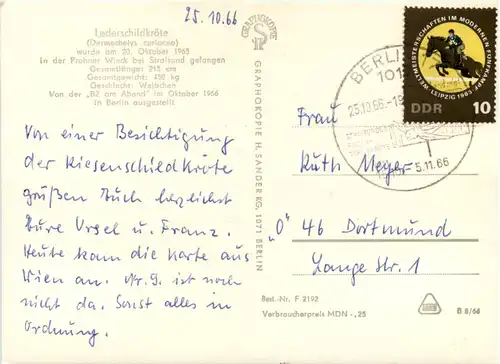 25.10.66
Lederschildkröte
(Dermochelys coriacea)
wurde am 20. Oktober 1965
in der Prohner Wieck bei Stralsund gefangen
Gesamtlänge: 215 cm
Gesamtgewicht: 450 kg
Geschlecht: Weibchen
Von der „BZ am Abend“ im Oktober 1966
in Berlin ausgestellt
Von einer Besichtigung
der Riesenschildkröte
grüßen Euch herzlichst
Eure Ursel u. Franz.
Heute kam die Karte aus
Wien an. Nr. 9. ist noch
nicht da. Sonst alles in
Ordnung.
GRAPHOKOPIE
GRAPHOKOPIE H. SANDER KG, 1071 BERLIN
WELTMEISTERSCHAFTEN IM MODERNEN FÜNFKAMPF
LEIPZIG 1965
DDR 10
BERLIN
25.10.66
5.11.66
Frau
Ruth Meyer
„O“ 46 Dortmund
Lange Str. 1
Best.-Nr. F 2192
Verbraucherpreis MDN -,25
B 8/66